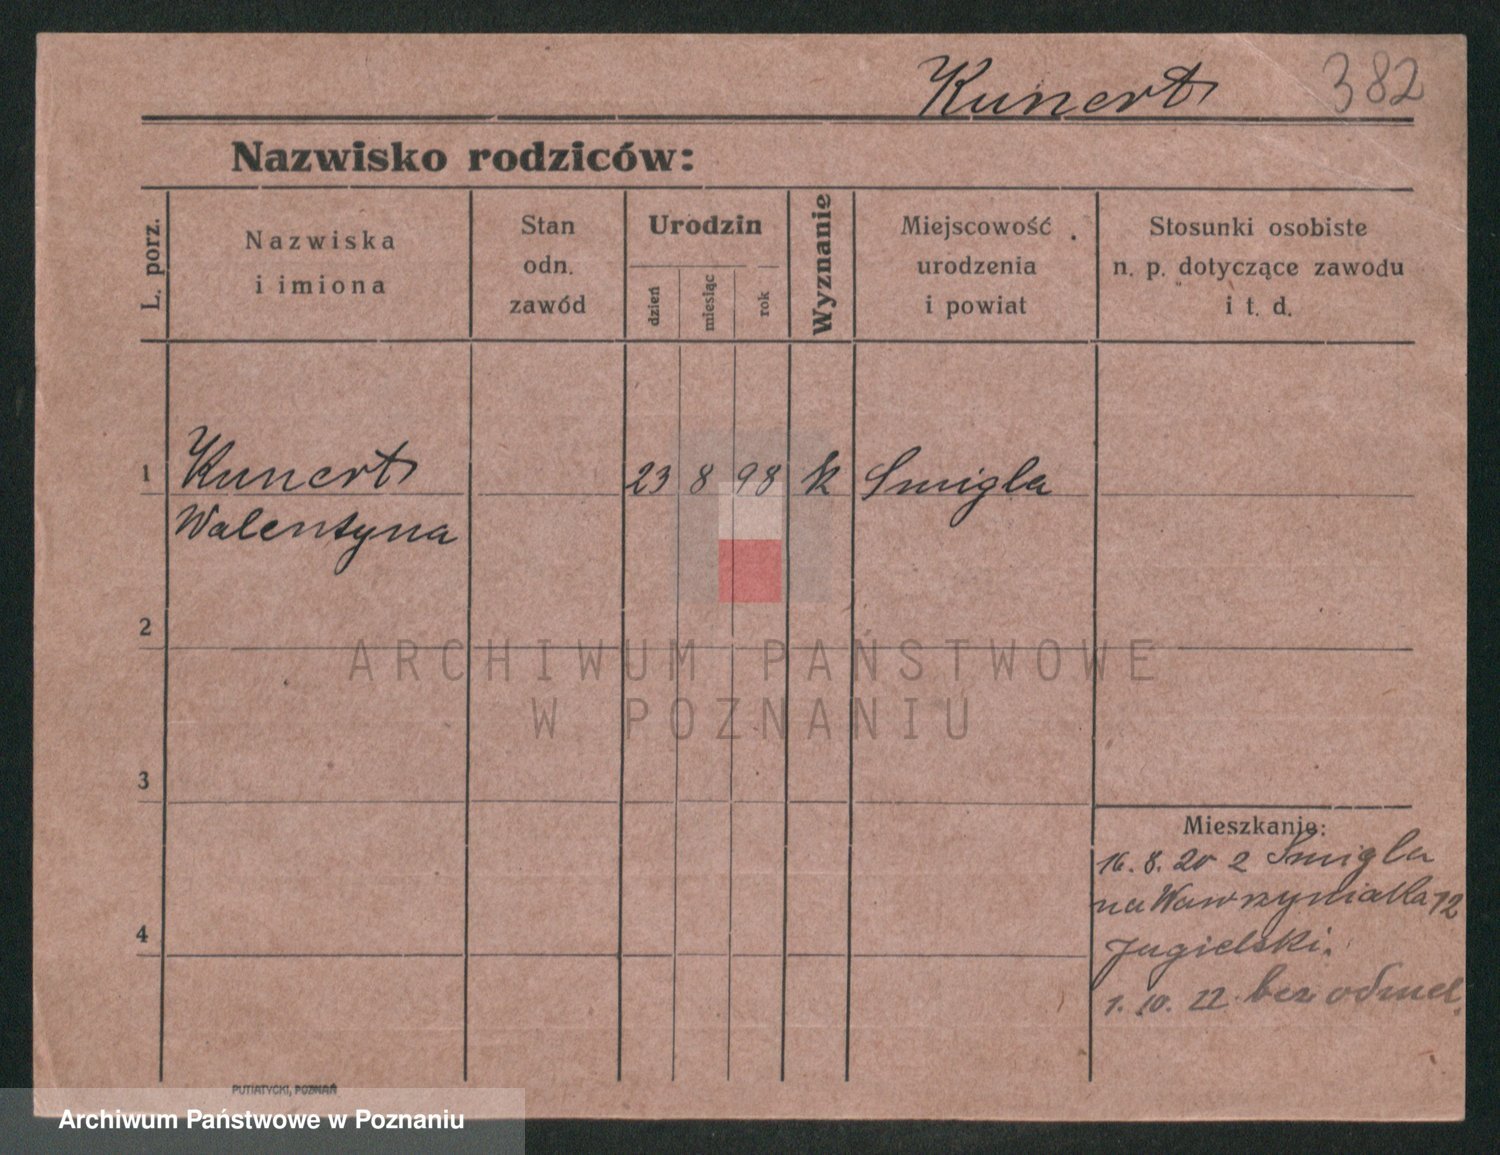 Kunert 382
Nazwisko rodziców:
L. porz.
Nazwiska
i imiona
Stan
odn.
zawód
Urodzin
dzień
miesiąc
rok
Wyznanie
Miejscowość
urodzenia
i powiat
Stosunki osobiste
n. p. dotyczące zawodu
i t. d.
1 Kunert 23 8 98 k Smigla
Walentyna
2
ARCHIWUM PAŃSTWOWE
W POZNANIU
3
Mieszkanie:
16. 8. 20 z Smigla
na Wawrzyniaka 12
Jagielski.
4
1. 10. 22 bez odmel.
PUTIATYCKI, POZNAŃ
Archiwum Państwowe w Poznaniu